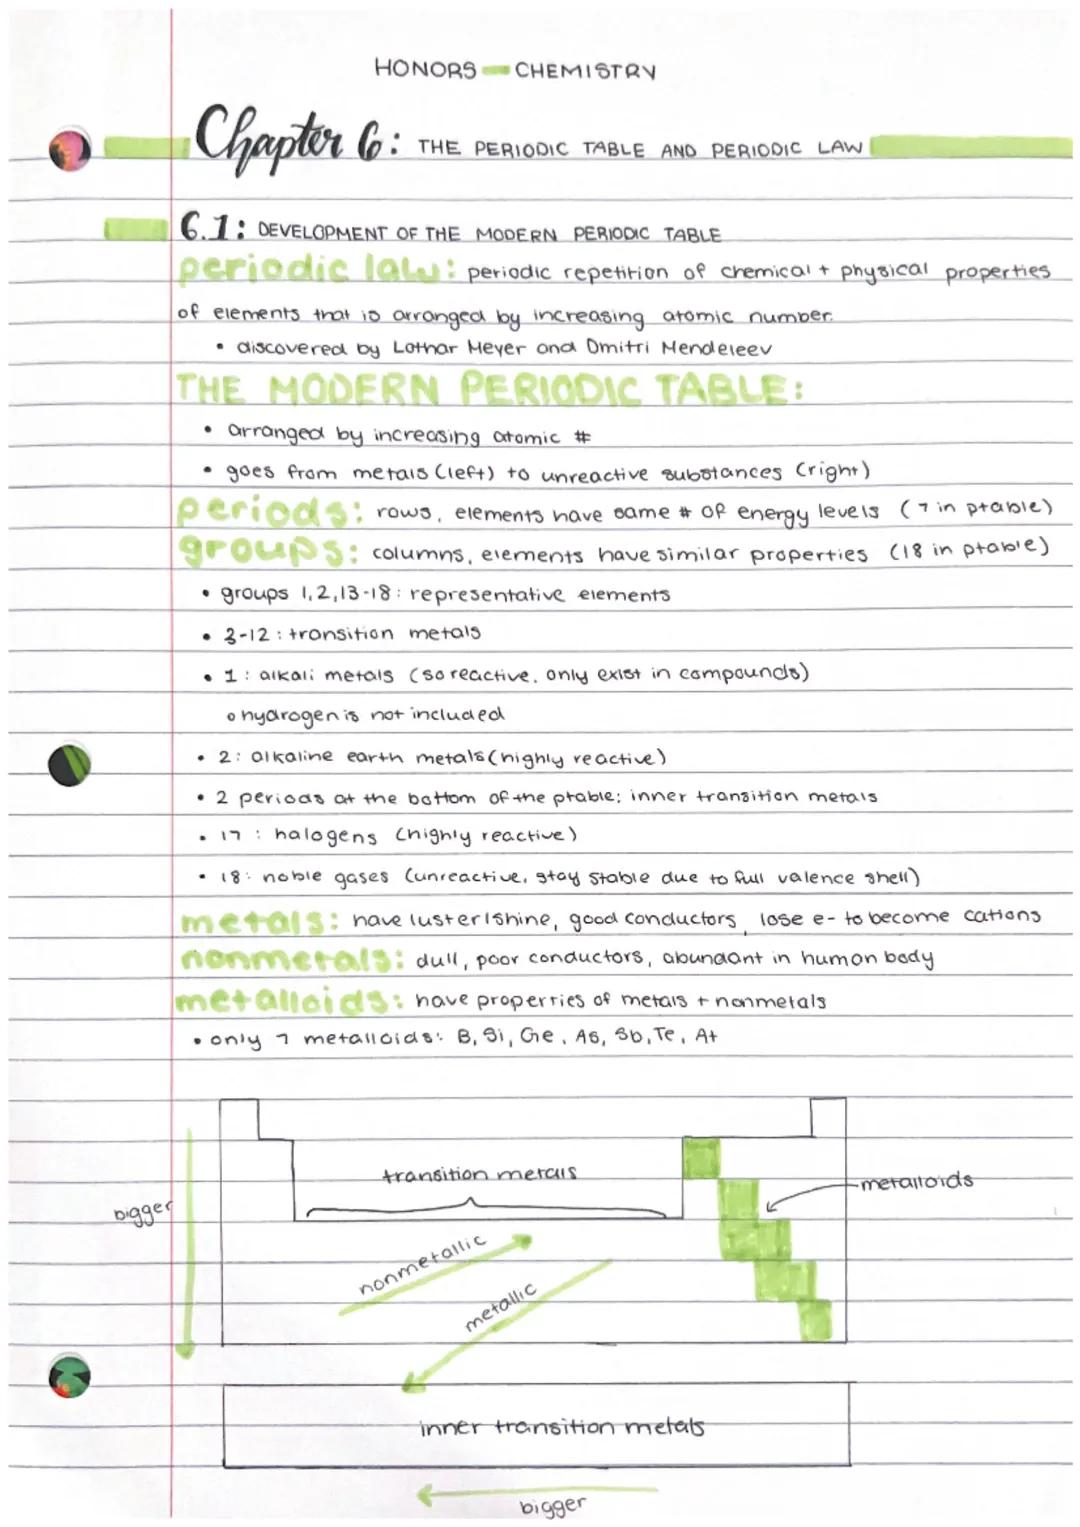 HONORS - CHEMISTRY
Chapter 6: THE PERIODIC TABLE AND PERIODIC LAW
6.1: DEVELOPMENT OF THE MODERN PERIODIC TABLE
periodic law: periodic repetition of chemical + physical properties
of elements that is arranged by increasing atomic number.
• discovered by Lothar Meyer and Dmitri Mendeleev
THE MODERN PERIODIC TABLE:
• arranged by increasing atomic #
• goes from metals (left) to unreactive substances (right)
periods: rows, elements have same # of energy levels (7 in ptable)
groups: columns, elements have similar properties (18 in ptable)
• groups 1,2,13-18: representative elements
• 3-12: transition metals
• 1: alkali metals (so reactive, only exist in compounds)
o hydrogen is not included
• 2: alkaline earth metals (highly reactive)
• 2 periods at the bottom of the ptable: inner transition metals
• 17: halogens (highly reactive)
• 18: noble gases (unreactive, stay stable due to full valence shell)
metals: have luster/shine, good conductors, lose e- to become cations
nonmetals: dull, poor conductors, abundant in human body
metalloids: have properties of metals + nonmetals
• only 7 metalloids: B, Si, Ge, As, Sb, Te, At
transition metals
metalloids
bigger
nonmetallic
metallic
inner transition metals
bigger